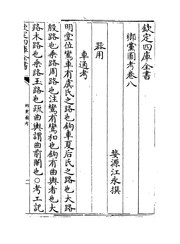 欽定四庫全書
鄉黨圖考卷八
婺源江永撰
器用
車通考
明堂位鸞車有虞氏之路也鉤車夏后氏之路也大路
殷路也乘路周路也注鸞有鸞和也鉤有曲輿者也大
路木路也乘路玉路也疏曲輿謂曲前闌也○考工記